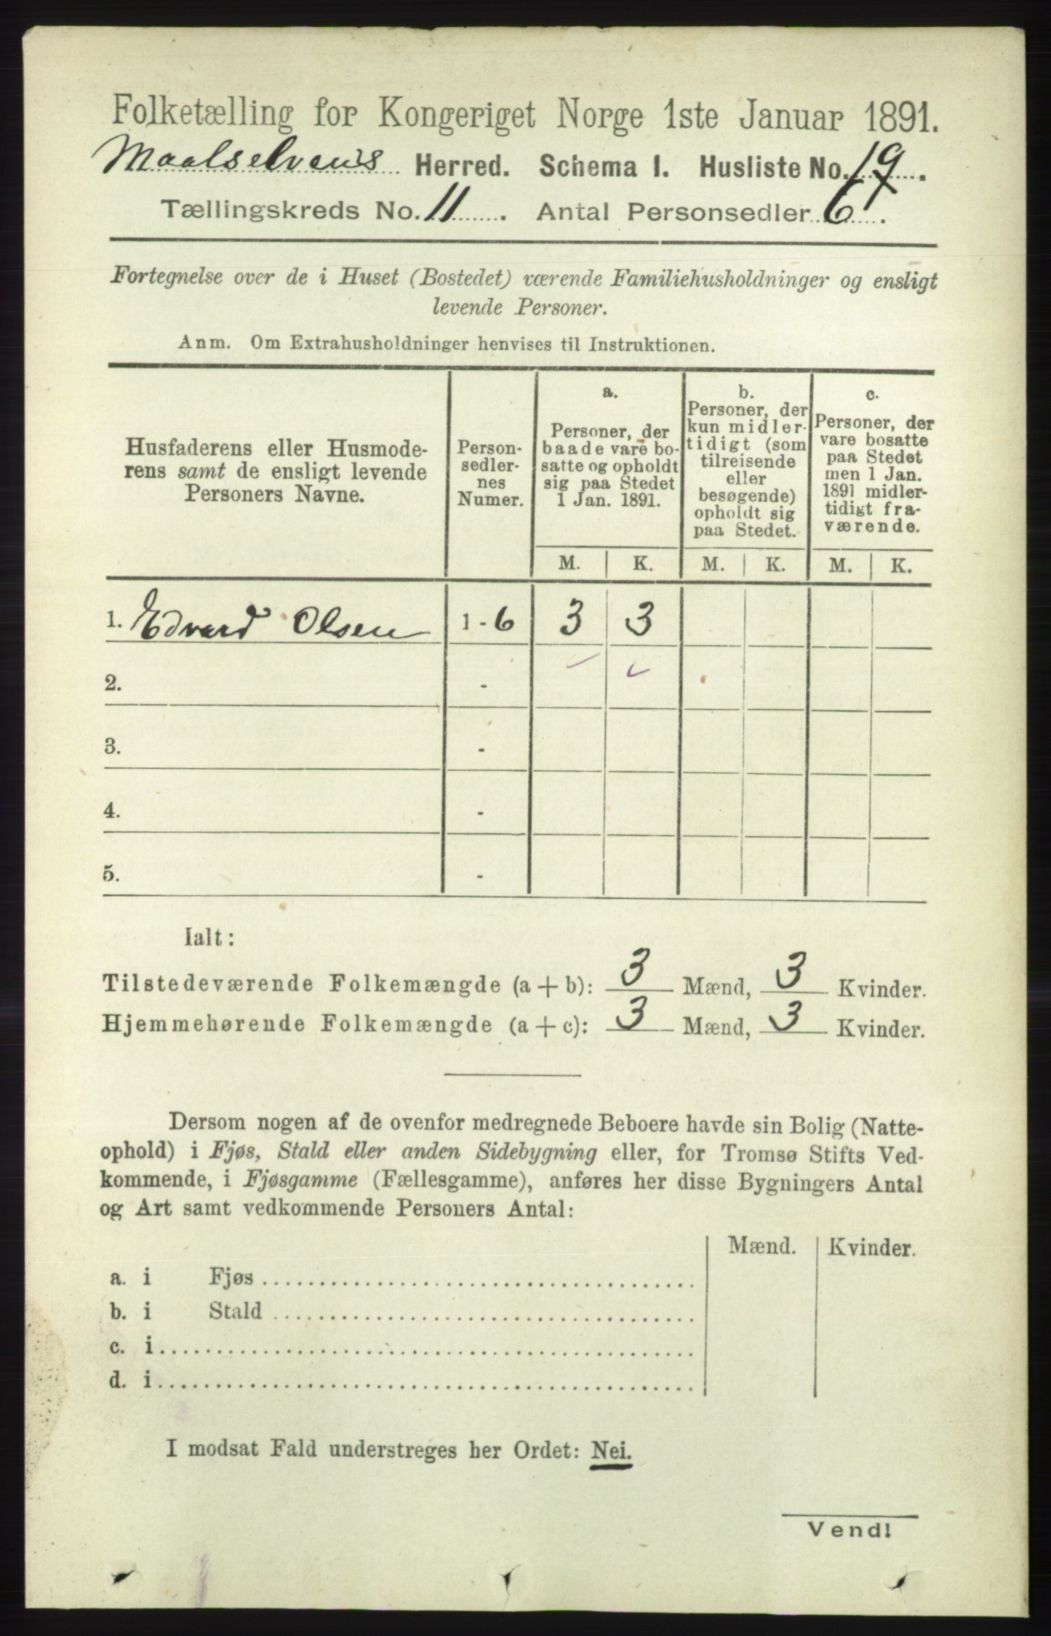 Folketælling for Kongeriget Norge 1ste Januar 1891.
Maalselvens Herred. Schema I. Husliste No. 19.
Tællingskreds No. 11. Antal Personsedler 6.
Fortegnelse over de i Huset (Bostedet) værende Familiehusholdninger og ensligt
levende Personer.
Anm. Om Extrahusholdninger henvises til Instruktionen.
Husfaderens eller Husmode-
rens samt de ensligt levende
Personers Navne.
Person-
sedler-
nes
Numer.
a.
Personer, der
baade vare bo-
satte og opholdt
sig paa Stedet
1 Jan. 1891.
b.
Personer, der
kun midler-
tidigt (som
tilreisende
eller
besøgende)
opholdt sig
paa Stedet.
c.
Personer, der
vare bosatte
paa Stedet
men 1 Jan.
1891 midler-
tidigt fra-
værende.
M. K. M. K. M. K.
1. Edvard Olsen 1 - 6 3 3
2. -
3. -
4. -
5. -
Ialt:
Tilstedeværende Folkemængde (a + b): 3 Mænd, 3 Kvinder.
Hjemmehørende Folkemængde (a + c): 3 Mænd, 3 Kvinder.
Dersom nogen af de ovenfor medregnede Beboere havde sin Bolig (Natte-
ophold) i Fjøs, Stald eller anden Sidebygning eller, for Tromsø Stifts Ved-
kommende, i Fjøsgamme (Fællesgamme), anføres her disse Bygningers Antal
og Art samt vedkommende Personers Antal:
Mænd. Kvinder.
a. i Fjøs
b. i Stald
c. i
d. i
I modsat Fald understreges her Ordet: Nei.
Vend!